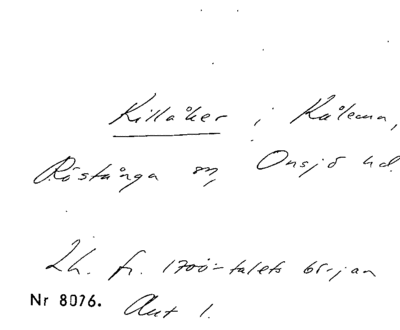 Killåker i Kålema,
Röstånga sn, Onsjö hd.
2h. fr. 1700-talets början
Nr 8076. Aut 1.